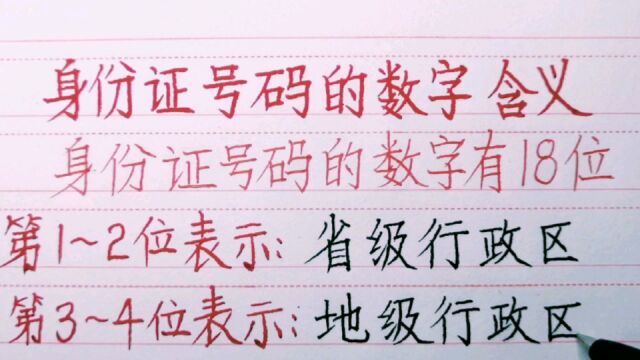 身份证号码的数字含义
身份证号码的数字有18位
第1~2位表示:省级行政区
第3~4位表示:地级行政区